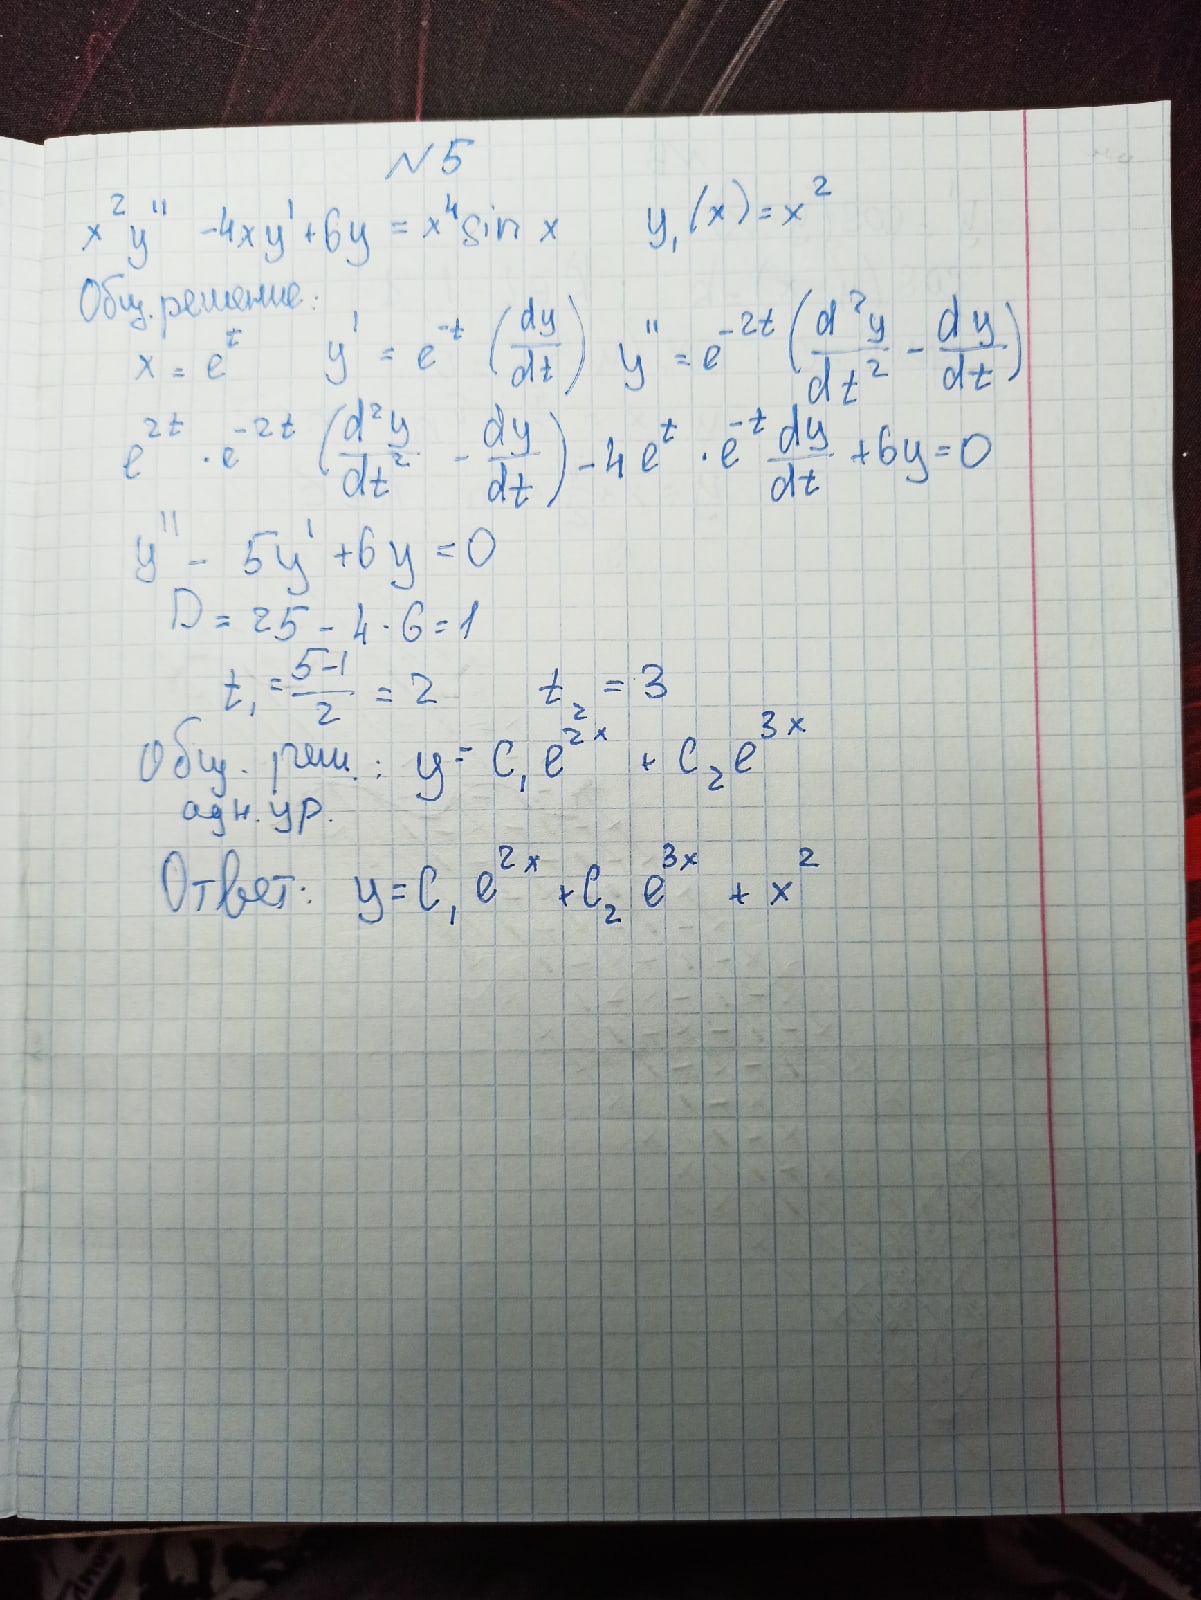 N 5
x²y'' - 4xy' + 6y = x⁴ sin x    y₁(x) = x²
Общ. решение:
x = e^t    y' = e^(-t) (dy/dt)    y'' = e^(-2t) (d²y/dt² - dy/dt)
e^(2t) · e^(-2t) (d²y/dt² - dy/dt) - 4e^t · e^(-t) dy/dt + 6y = 0
y'' - 5y' + 6y = 0
D = 25 - 4 · 6 = 1
t₁ = (5-1)/2 = 2    t₂ = 3
Общ. реш.: y = C₁e^(2x) + C₂e^(3x)
одн. ур.
Ответ: y = C₁ e^(2x) + C₂ e^(3x) + x²